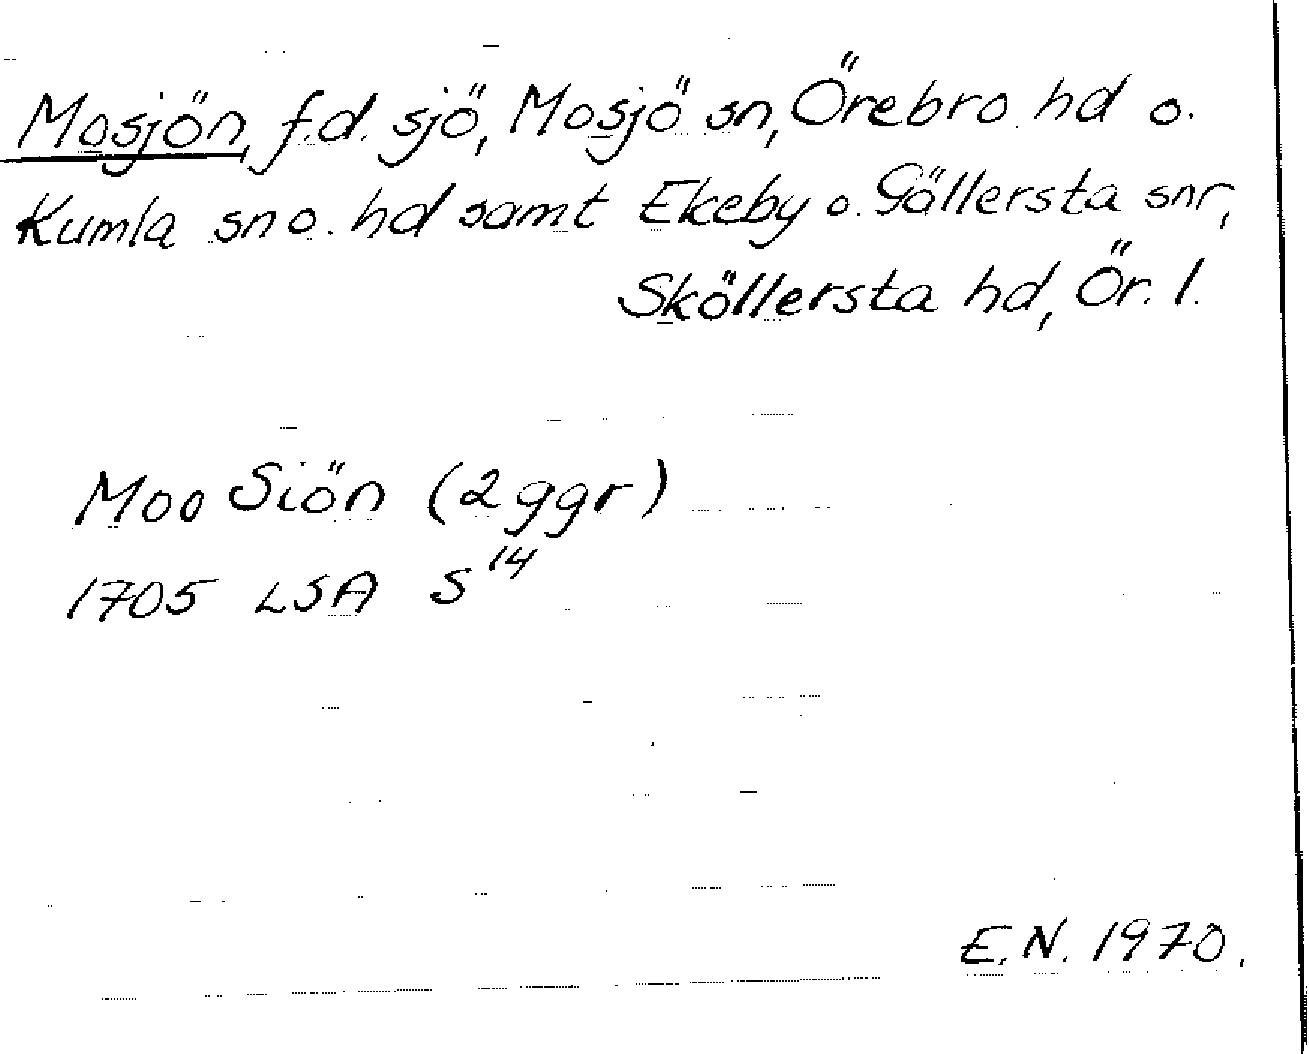 Mosjön, f.d. sjö, Mosjö sn, Örebro hd o.
Kumla sn o. hd samt Ekeby o. Gällersta snr,
Sköllersta hd, Ör. l.
Moo Siön (2 ggr)
1705 LSA S 14
E.N. 1970.